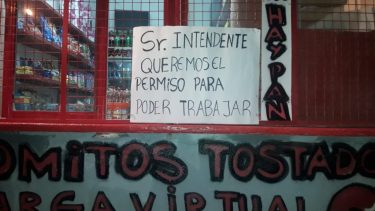 Sr. INTENDENTE
QUEREMOS EL
PERMISO PARA
PODER TRABAJAR.
HAS PAN
OMITOS TOSTADO
ARGA VIRTUAL